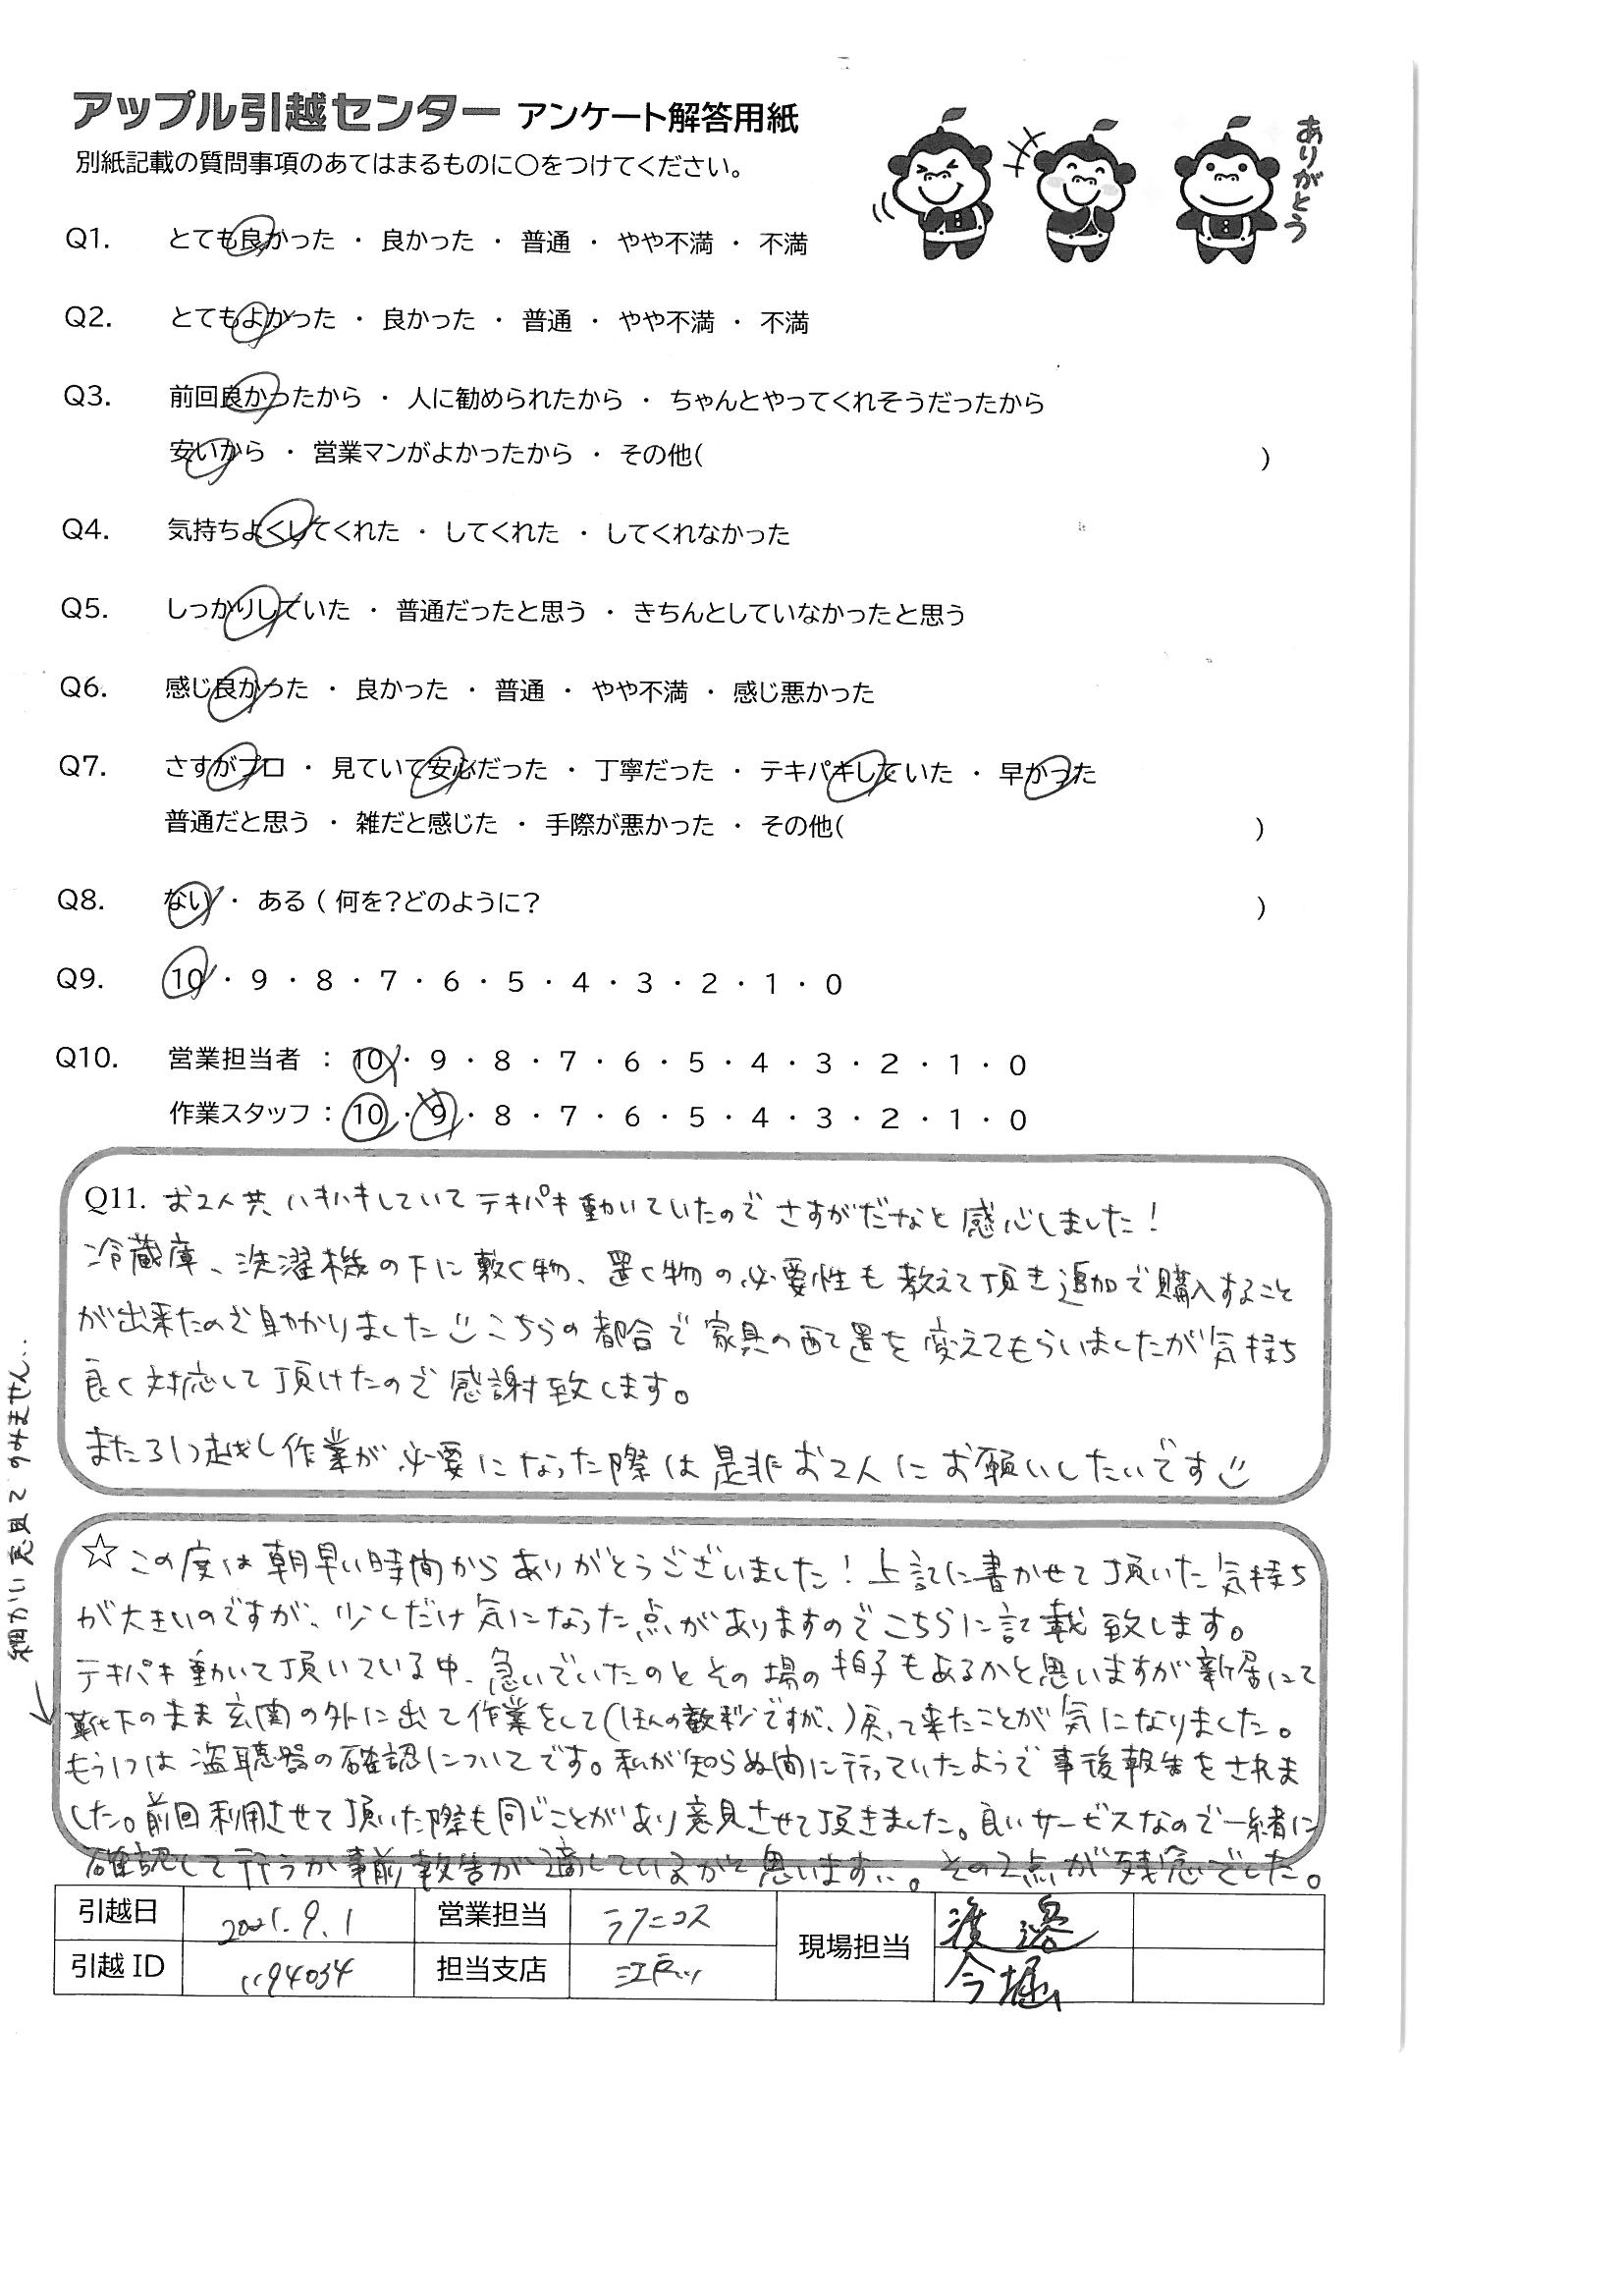 アップル引越センター アンケート解答用紙
別紙記載の質問事項のあてはまるものに〇をつけてください。
ありがとう
Q1. とても良かった ・ 良かった ・ 普通 ・ やや不満 ・ 不満
Q2. とてもよかった ・ 良かった ・ 普通 ・ やや不満 ・ 不満
Q3. 前回良かったから ・ 人に勧められたから ・ ちゃんとやってくれそうだったから
安いから ・ 営業マンがよかったから ・ その他( )
Q4. 気持ちよくしてくれた ・ してくれた ・ してくれなかった
Q5. しっかりしていた ・ 普通だったと思う ・ きちんとしていなかったと思う
Q6. 感じ良かった ・ 良かった ・ 普通 ・ やや不満 ・ 感じ悪かった
Q7. さすがプロ ・ 見ていて安心だった ・ 丁寧だった ・ テキパキしていた ・ 早かった
普通だと思う ・ 雑だと感じた ・ 手際が悪かった ・ その他( )
Q8. ない ・ ある ( 何を?どのように? )
Q9. 10 ・ 9 ・ 8 ・ 7 ・ 6 ・ 5 ・ 4 ・ 3 ・ 2 ・ 1 ・ 0
Q10. 営業担当者 : 10 ・ 9 ・ 8 ・ 7 ・ 6 ・ 5 ・ 4 ・ 3 ・ 2 ・ 1 ・ 0
作業スタッフ : 10 ・ 9 ・ 8 ・ 7 ・ 6 ・ 5 ・ 4 ・ 3 ・ 2 ・ 1 ・ 0
Q11. お2人共ハキハキしていてテキパキ動いていたのでさすがだなと感心しました!
冷蔵庫、洗濯機の下に敷く物、置く物の必要性も教えて頂き追加で購入すること
が出来たので助かりました こちらの都合で家具の配置を変えてもらいましたが気持ち
良く対応して頂けたので感謝致します。
また引っ越し作業が必要になった際は是非お2人にお願いしたいです
☆この度は朝早い時間からありがとうございました!上記に書かせて頂いた気持ち
が大きいのですが、少しだけ気になった点がありますのでこちらに記載致します。
テキパキ動いて頂いている中、急いでいたのとその場の拍子もあるかと思いますが新居にて
靴下のまま玄関の外に出て作業をして(ほんの数秒ですが、)戻って来たことが気になりました。
もう1つは盗聴器の確認についてです。私が知らぬ間に行っていたようで事後報告をされま
した。前回利用させて頂いた際も同じことがあり意見させて頂きました。良いサービスなので一緒に
確認して行うか事前報告が適しているかと思います…。その2点が残念でした。
細かい意見ですみません..
引越日 2021.9.1 営業担当 現場担当 渡邊
引越 ID 1194034 担当支店 今堀